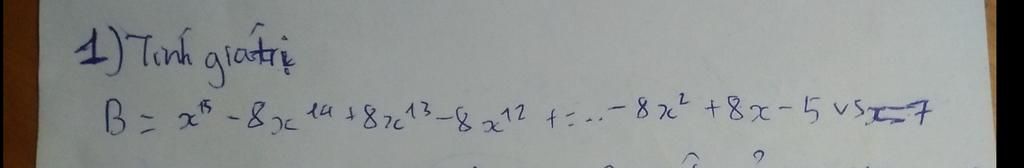 1) Tính giá trị
B = x¹⁵ - 8x¹⁴ + 8x¹³ - 8x¹² + ... - 8x² + 8x - 5 vs x = 7